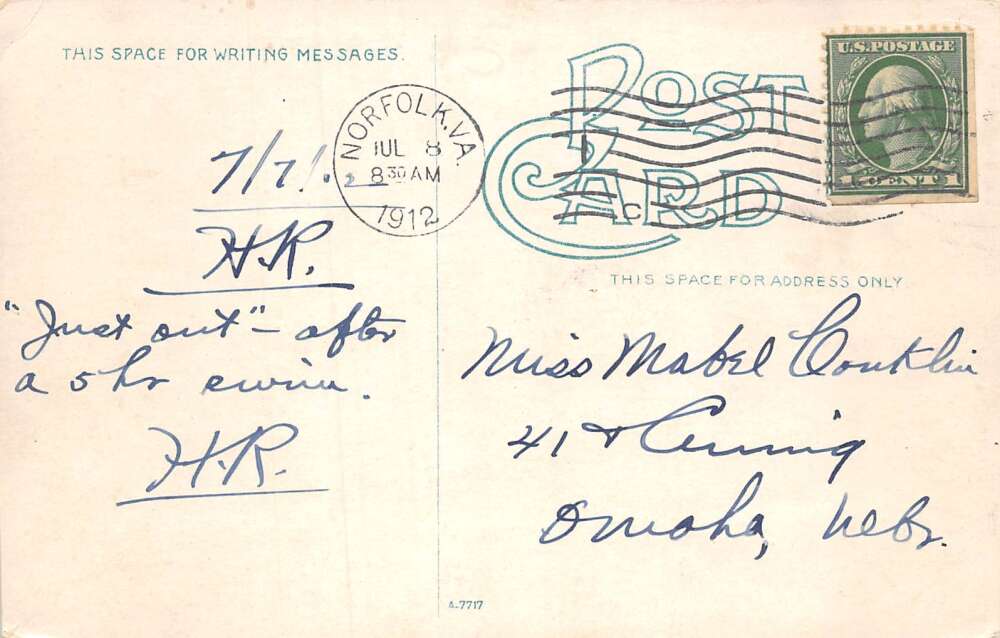 THIS SPACE FOR WRITING MESSAGES.
7/7/
H.R.
"Just out" – after
a 5 hr swim.
H.R.
NORFOLK, VA.
JUL 8
8 30 AM
1912
C
POST
CARD
U.S. POSTAGE
1 CENT 1
THIS SPACE FOR ADDRESS ONLY.
Miss Mabel Conklin
41 &
Omaha, Nebr.
A-7717